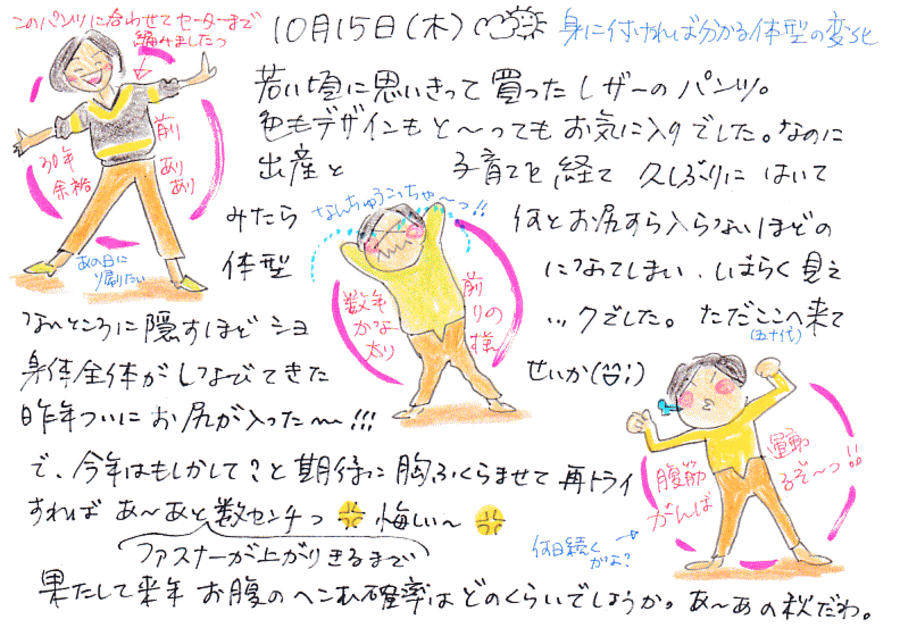 このパンツに合わせてセーターまで
編みましたっ
10月15日(木)
身に付ければ分かる体型の変化
若い頃に思いきって買ったレザーのパンツ。
色もデザインもと〜ってもお気に入りでした。なのに
出産と 子育てを経て 久しぶりにはいて
みたら 何とお尻すら入らないほどの
体型 になってしまい、しばらく見え
ないところに隠すほどショ ックでした。ただここへ来て
(五十代)
身体全体がしなびてきた せいか
昨年ついにお尻が入った〜!!!
で、今年はもしかして?と期待に胸ふくらませて再トライ
すれば あ〜あと数センチっ 悔しい〜
ファスナーが上がりきるまで
果たして来年お腹のヘコむ確率はどのくらいでしょうか。あ〜あの秋だわ。
30年前
余裕ありあり
あの日に
り帰りたい
なんちゅうこっちゃ〜っ!!
数年前
かなりの
太り様
腹筋運動
がんばるぞ〜っ!!
何日続く
かよ?